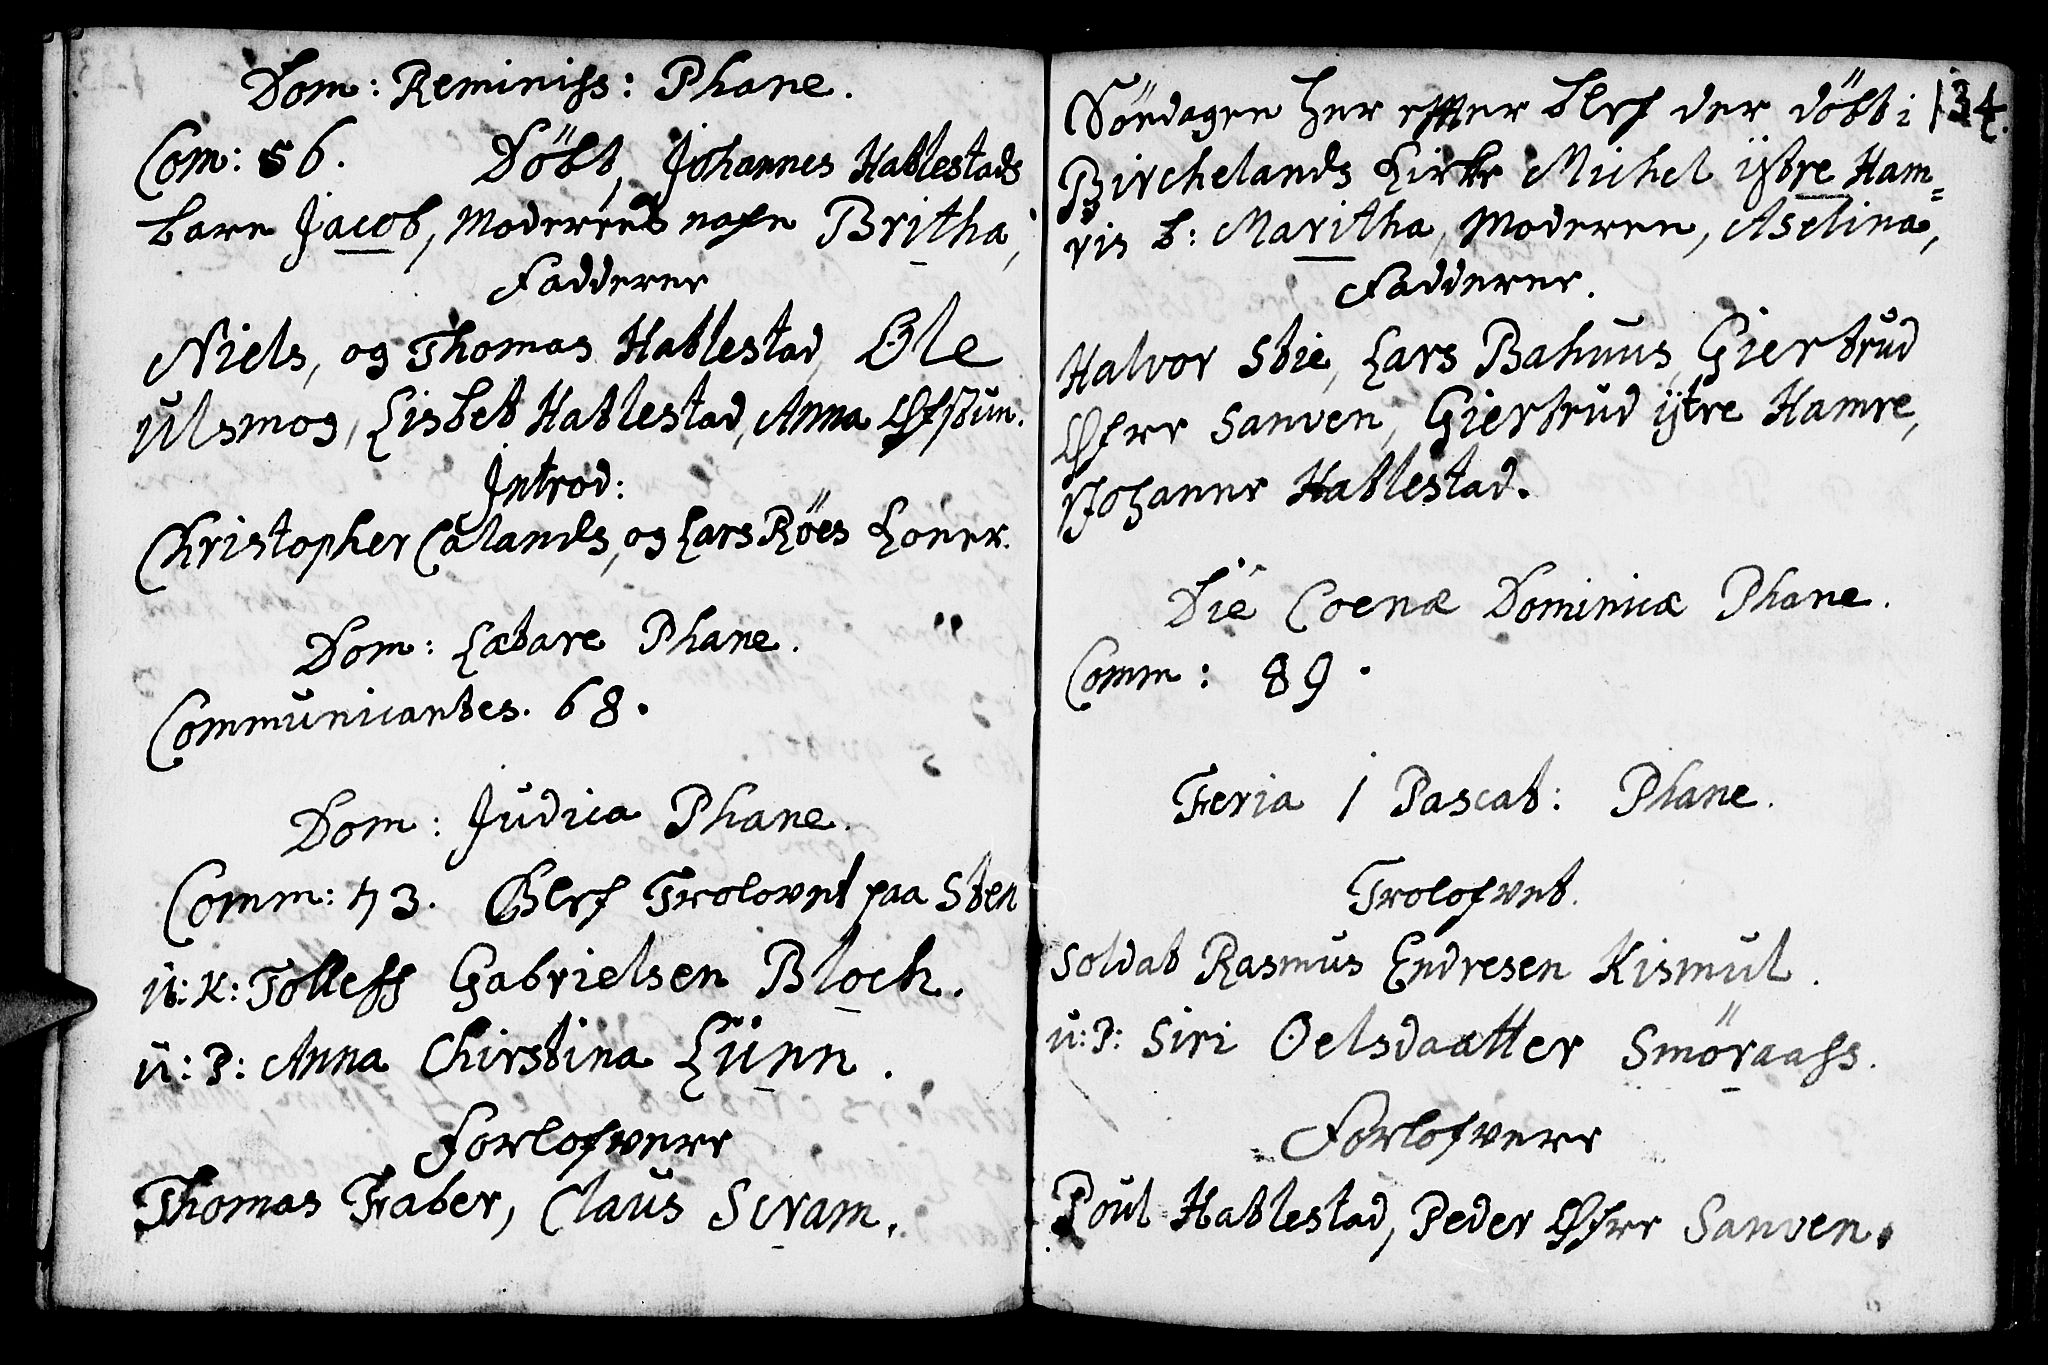 Dom: Reminiss: Phane.
Com: 56. Döbt, Johannes Hatlestads
barn Jacob, Moderens nafn Britha,
Fadderne
Niels, og Thomas Hatlestad, Ole
Ulsmog, Lisbet Hatlestad, Anna Øfstun.
Introd:
Christopher Calands, og Lars Röes Koner.
Dom: Lætare Phane.
Communicantes. 68.
Dom: Judica Phane.
Comm: 73. Blef Trolovet paa Sten
U: K: Tollefs Gabrielsen Bloch.
u: P: Anna Chirstina Lunn.
Forlofvere
Thomas Faber, Claus Scram.
134.
Söndagen her effter blef der döbt i
Birchelands Kirke Michel ÿtre Ham=
ris b: Maritha, Moderen, Aselina,
Fadderne.
Halvor Stie, Lars Bahuus, Giertrud
Øfre Sanven, Giertrud ÿtre Hamre,
Johanne Hatlestad.
Die Coenæ Dominicæ Phane.
Comm: 89.
Feria 1 Pascat: Phane.
Trolofvet.
Soldat Rasmus Endresen Kismul.
u: P: Siri Oelsdaatter Smöraass.
Forlofvere
Poul Hatlestad, Peder Øfre Sanven.